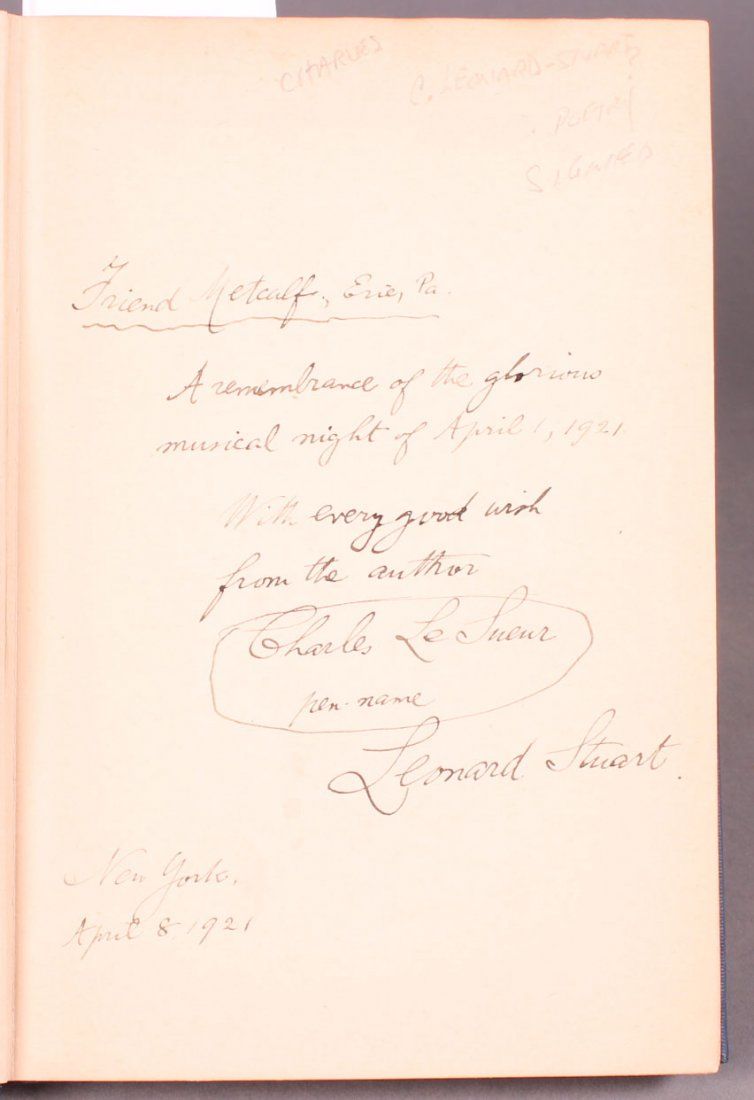 CHARLES
C. LEONARD-STUART
POETRY
SIGNED
Friend Metcalf, Erie, Pa.
A remembrance of the glorious
musical night of April 1, 1921.
With every good wish
from the author
Charles Le Sueur
pen-name
Leonard Stuart.
New York,
April 8, 1921